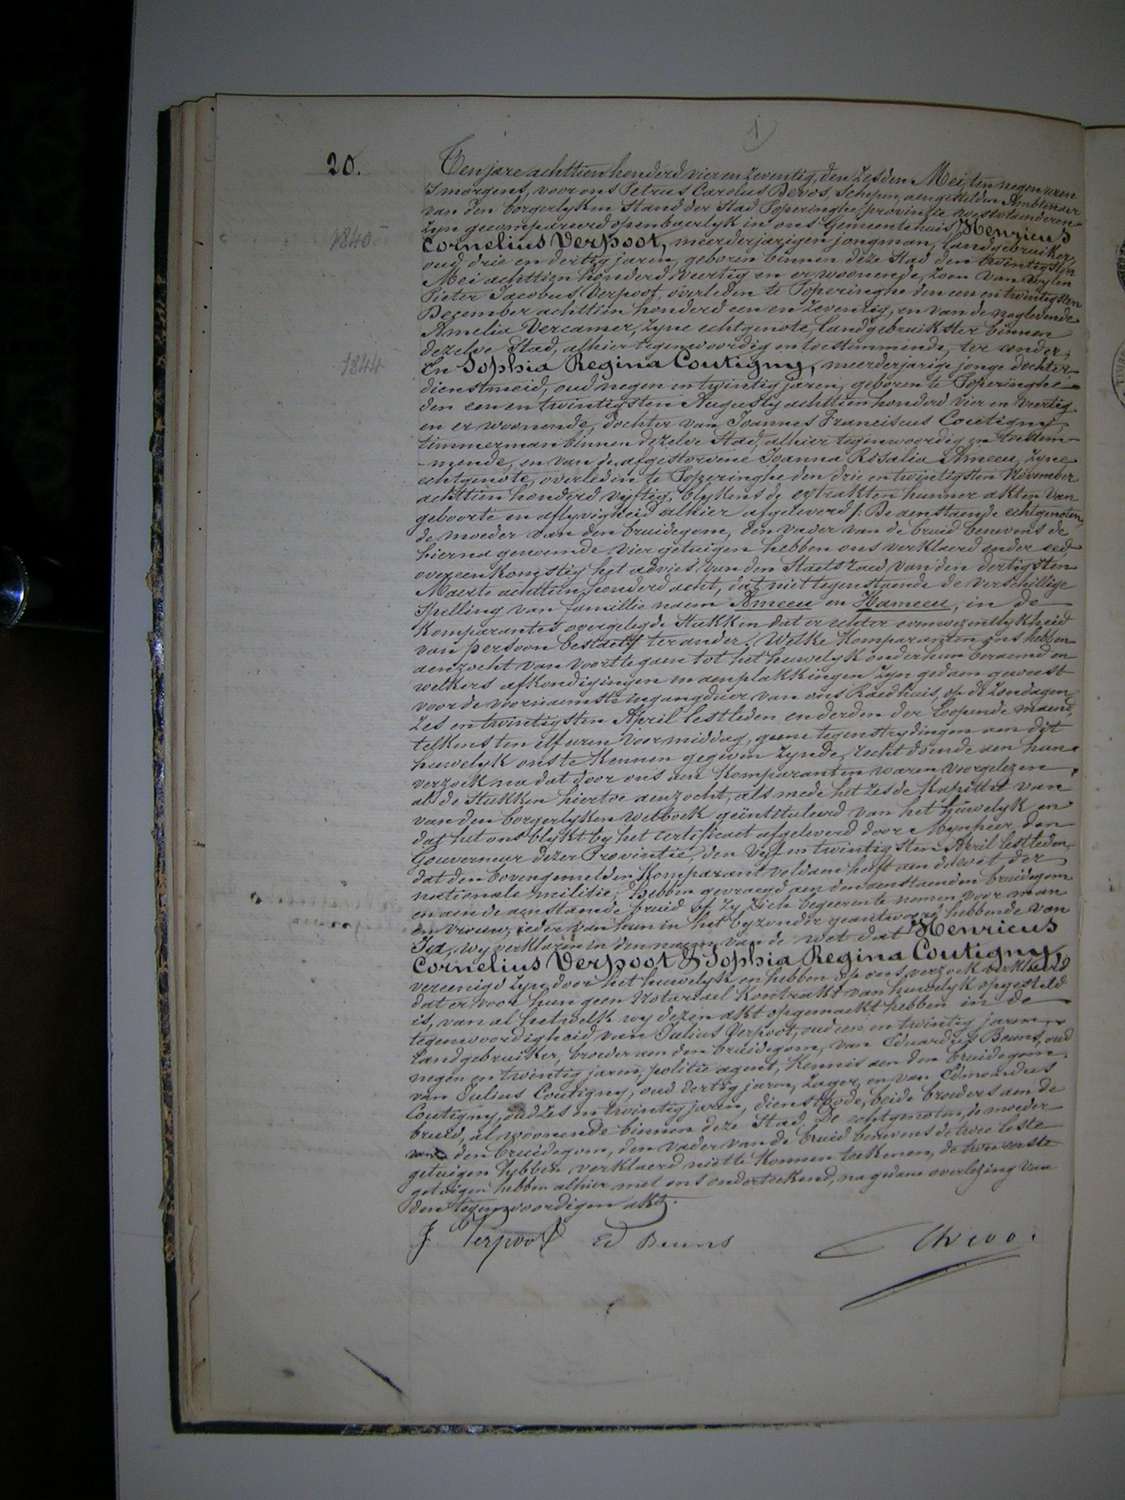 1
20.
Ten jare achttien honderd vier en zeventig, den zesden Mei, ten negen uren
's morgens, voor ons Petrus Carolus Devos, Schepen, aengestelden Ambtenaer
van den borgerlyken Stand der Stad Poperinghe, provincie Westvlaenderen
zyn gecompareerd openbaerlyk in ons Gemeentehuis, Henricus
1840
Cornelius Verpoot, meerderjarigen jongman, landgebruiker,
oud drie en dertig jaren, geboren binnen deze Stad den twintigsten
Mei achttien honderd veertig en er woonende, zoon van wylen
Pieter Jacobus Verpoot, overleden te Poperinghe den een en twintigsten
December achttien honderd een en zeventig, en van de nagelevende
Amelia Vercamer, zyne echtgenote, landgebruikster binnen
dezelve Stad, alhier tegenwoordig en toestemmende, ter eender;
1844
En Sophia Regina Coutigny, meerderjarige jonge dochter
dienstmeid, oud negen en twintig jaren, geboren te Poperinghe
den een en twintigsten Augusty achttien honderd vier en veertig
en er woonende, dochter van Joannes Franciscus Coutigny,
timmerman binnen dezelve Stad, alhier tegenwoordig en toestem-
-mende, en van de afgestorvene Joanna Rosalia Ameeu, zyne
echtgenote, overleden te Poperinghe den drie en twintigsten November
achttien honderd vyftig, blykens de extrakten hunner akten van
geboorte en aflyvigheid alhier afgeleverd/. De aenstaende echtgenoten,
de moeder van den bruidegom, den vader van de bruid benevens de
hierna genoemde vier getuigen hebben ons verklaerd onder eed,
overeenkomstig het advies van den Staetsraed van den dertigsten
Maerte achttien honderd acht, dat niettegenstaende de verschillige
Spelling van famillie naem Ameeu en Hameeu, in de
komparantes overgelegde Stukken dat er echter eenwezentlykheid
van persoon bestaet/ ter ander; Welke komparanten ons hebben
aenzocht van voortte gaen tot het huwelyk onder hun beraemd en
welkers afkondigingen en aenplakkingen zyn gedaen geweest
voor de voornaemste ingangdeur van ons Raedhuis, op de Zondagen
zes en twintigsten April lestleden en derden der loopende maend,
telkens ten elf uren voormiddag, geene tegenstrydingen aen dit
huwelyk ons te kennen gegeven zynde, recht doende aen hun
verzoek na dat door ons aen komparanten waren voorgelezen
al de Stukken hiertoe aenzocht, als mede het zesde Kapittel van
van den borgerlyken Wetboek geïntituleerd van het Huwelyk en
dat het ons blykt by het certificaet afgeleverd door Mynheer den
Gouverneur dezer Provintie, den vyf en twintigsten April lestleden,
dat den bovengemelden Komparant voldaen heeft aen de wet der
nationale militie; Hebben gevraegd aen den aenstaenden bruidegom
en aen de aenstaende bruid of zy zich begeerente nemen voor man
en vrouw; ieder van hun in het byzonder geantwoord hebbende van
Ja, wy verklaren in den naem van de wet dat Henricus
Cornelius Verpoot & Sophia Regina Coutigny,
vereenigd zyn door het huwelyk en hebben op ons verzoek verklaerd
dat er voor hun geen Notarieel Kontrakt van huwelyk opgesteld
is, van al hetwelk wy dezen akt opgemaekt hebben in de
tegenwoordigheid van Julius Verpoot, oud een en twintig jaren,
landgebruiker, broeder aen den bruidegom, van Eduardus Beuns, oud
negen en twintig jaren, politie agent, kennis aen den bruidegom,
van Julius Coutigny, oud dertig jaren, zager, en van Edmondus
Coutigny, oud zes en twintig jaren, dienstbode, beide broeders aen de
bruid, al woonende binnen deze Stad. De echtgenoten, de moeder
van den bruidegom, den vader van de bruid benevens de twee leste
getuigen hebben verklaerd niet te konnen teekenen, de twee eerste
getuigen hebben alhier met ons onderteekend, na gedane overlezing van
den tegenwoordigen akt.
J. Verpoot Ed Beuns